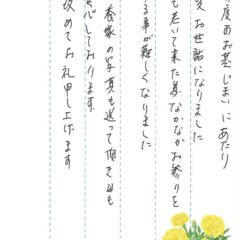 度のお墓じまいにあたり
お世話になりました
も老いて来た為なかなかお参りを
る事が難しくなりました
養家の写真も送って頂き
しております
改めてお礼申し上げます